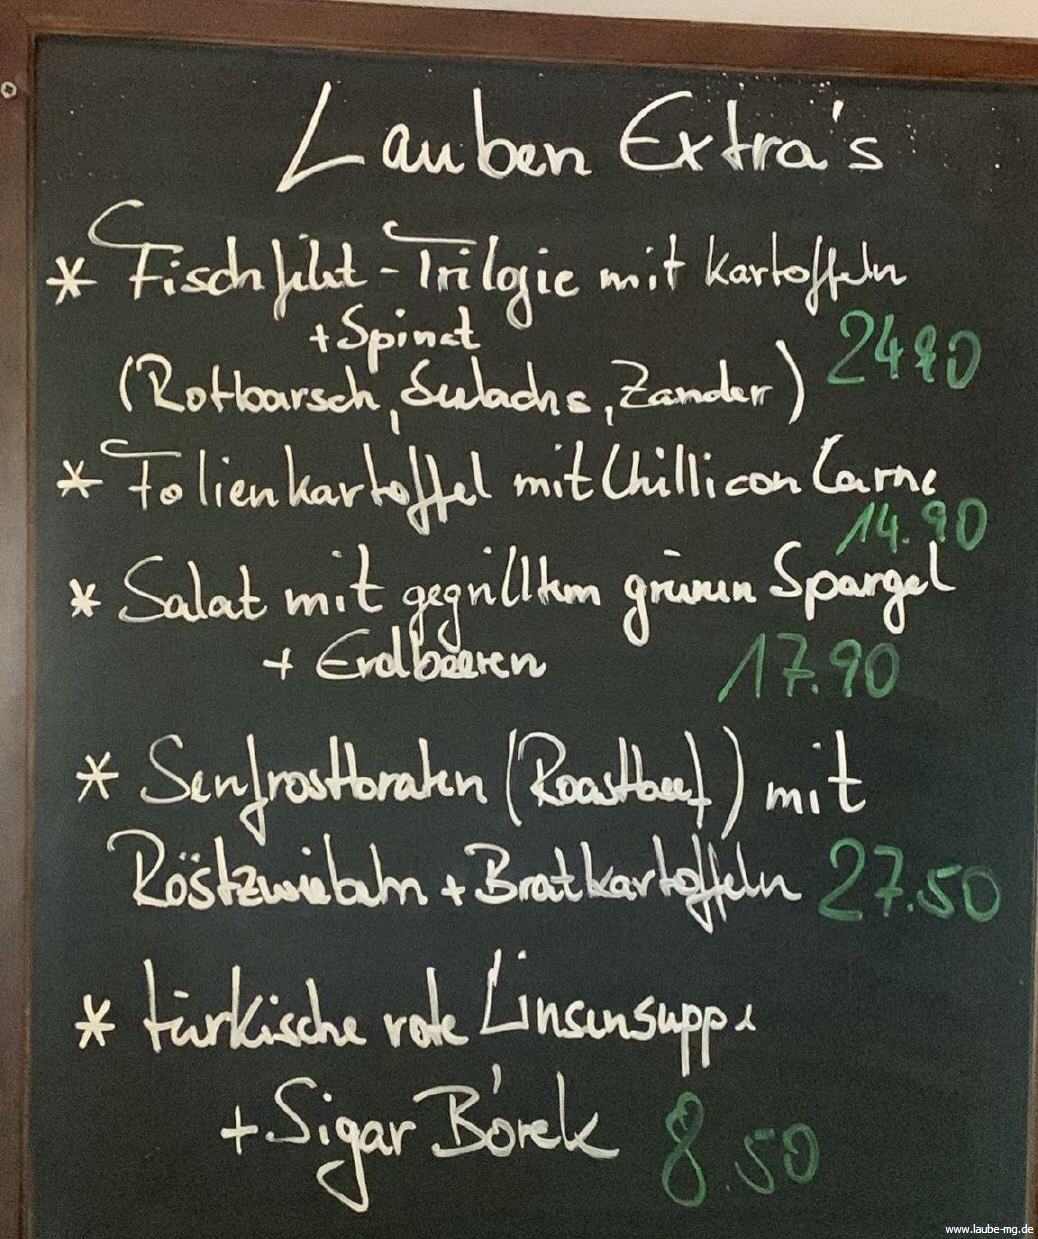 Lauben Extra's
* Fischfilet-Trilogie mit Kartoffeln
+ Spinat
(Rotbarsch, Seelachs, Zander) 24.90
* Folienkartoffel mit Chilli con Carne
14.90
* Salat mit gegrilltem grünen Spargel
+ Erdbeeren 17.90
* Senfrostbraten (Roastbeef) mit
Röstzwiebeln + Bratkartoffeln 27.50
* türkische rote Linsensuppe
+ Sigar Börek 8.50
www.laube-mg.de